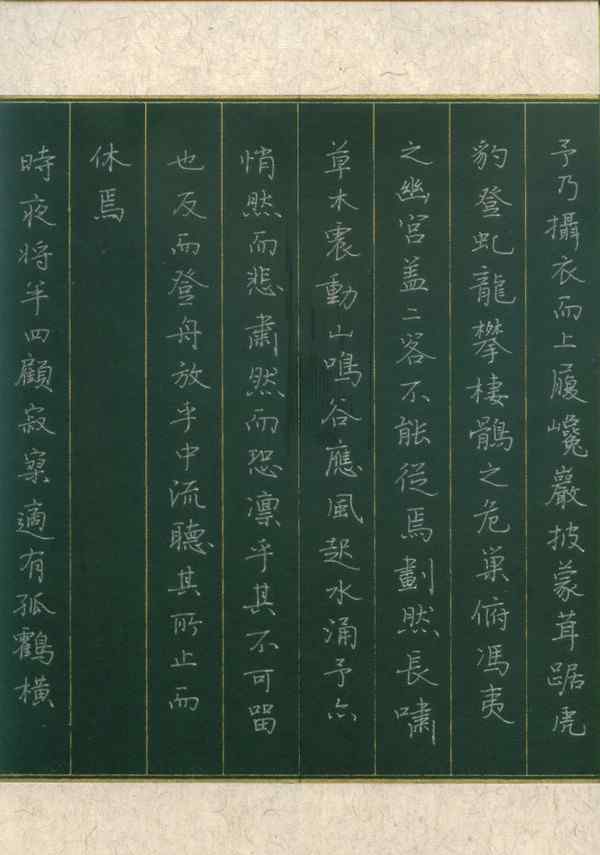 予乃攝衣而上履巉巖披蒙茸踞虎
豹登虬龍攀棲鶻之危巢俯馮夷
之幽宮盖二客不能從焉劃然長嘯
草木震動山鳴谷應風起水涌予亦
悄然而悲肅然而恐凛乎其不可留
也反而登舟放乎中流聽其所止而
休焉
時夜将半四顧寂寥適有孤鶴橫